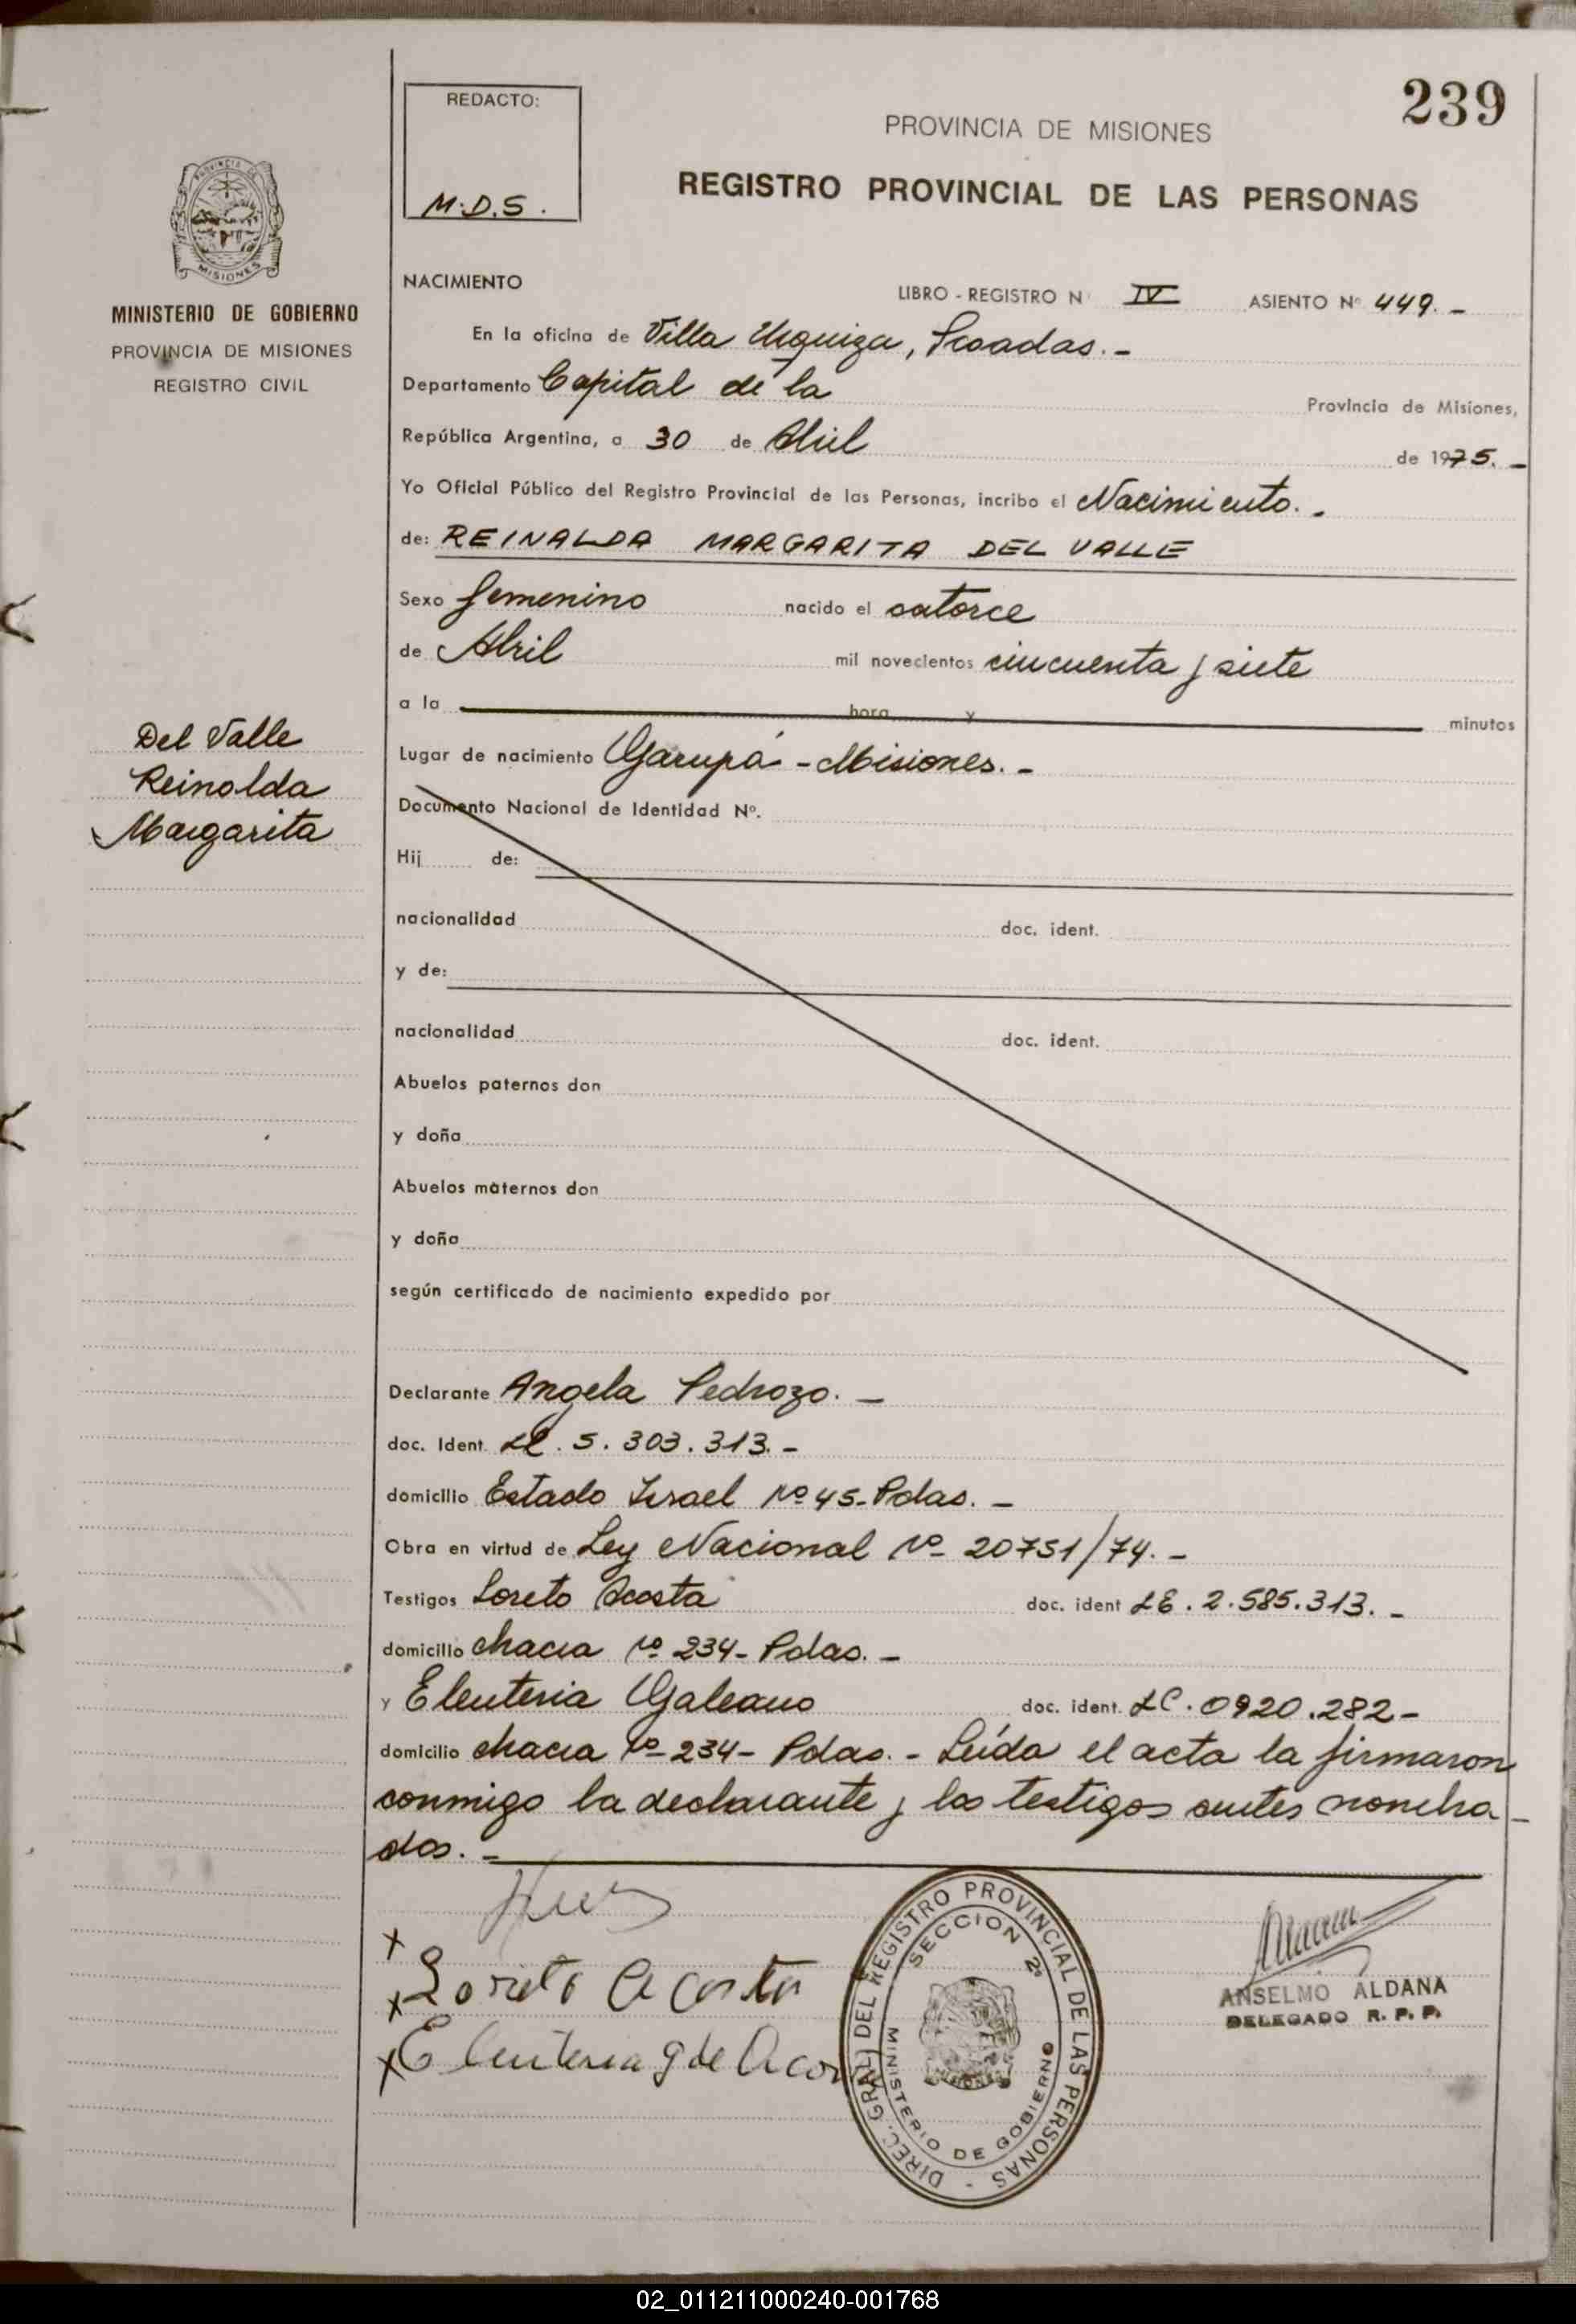 239
REDACTO:
M.D.S.
PROVINCIA DE MISIONES
REGISTRO PROVINCIAL DE LAS PERSONAS
PROVINCIA DE
MISIONES
MINISTERIO DE GOBIERNO
PROVINCIA DE MISIONES
REGISTRO CIVIL
NACIMIENTO
LIBRO - REGISTRO N IV ASIENTO Nº 449.-
En la oficina de Villa Urquiza, Posadas.-
Departamento Capital de la Provincia de Misiones,
República Argentina, a 30 de Abril de 1975.-
Yo Oficial Público del Registro Provincial de las Personas, incribo el Nacimiento.-
de: REINALDA MARGARITA DEL VALLE
Sexo femenino nacido el catorce
de Abril mil novecientos cincuenta y siete
a la hora y minutos
Del Valle
Reinalda
Margarita
Lugar de nacimiento Garupá - Misiones.-
Documento Nacional de Identidad Nº.
Hij de:
nacionalidad doc. ident.
y de:
nacionalidad doc. ident.
Abuelos paternos don
y doña
Abuelos maternos don
y doña
según certificado de nacimiento expedido por
Declarante Angela Pedrozo.-
doc. Ident. LC. 5.303.313.-
domicilio Estado Israel Nº 45-Pdas.-
Obra en virtud de Ley Nacional Nº 20751/74.-
Testigos Loreto Acosta doc. ident LE. 2.585.313.-
domicilio chacra Nº 234- Pdas.-
y Eleuteria Galeano doc. ident. LC. 0920.282-
domicilio chacra Nº 234- Pdas.- Leída el acta la firmaron
conmigo la declarante y los testigos antes nombra-
dos.-
x
x Loreto Acosta
x Eleuteria G de Acos
DIREC. GRAL. DEL REGISTRO PROVINCIAL DE LAS PERSONAS -
SECCION 2º
MINISTERIO DE GOBIERNO
ANSELMO ALDANA
DELEGADO R. P. P.
02_011211000240-001768